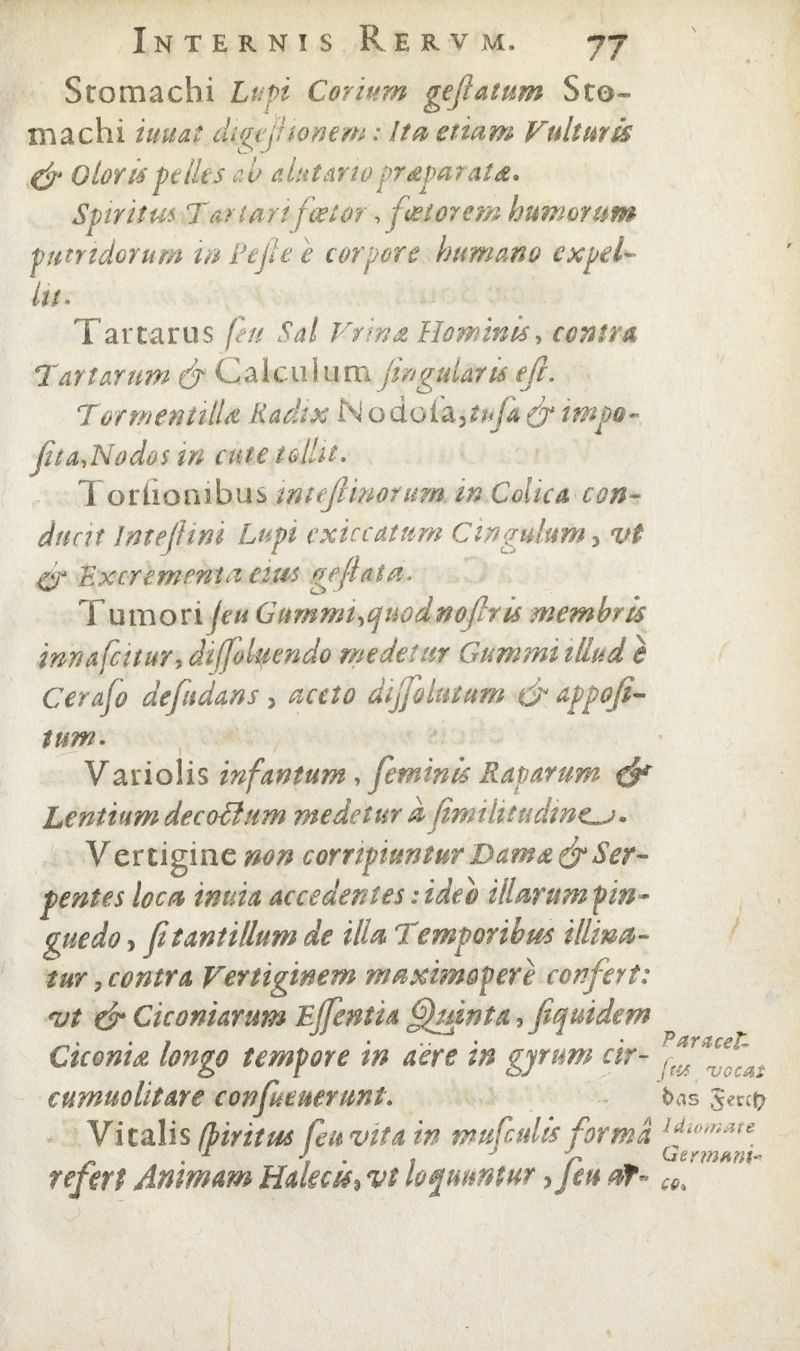 INTERNIS RERVM. 77
Stomachi Lupi Corium geſtatum Sto-
machi iuuat digeſtionem : Ita etiam Vulturis
& Oloris pelles ab alutario præparatæ.
Spiritus Tartari fœtor, fœtorem humorum
putridorum in Peſte è corpore humano expel-
lit.
Tartarus ſeu Sal Vrinæ Hominis, contra
Tartarum & Calculum ſingularis eſt.
Tormentillæ Radix Nodoſa, tuſa & impo-
ſita, Nodos in cute tollit.
Torſionibus inteſtinorum in Colica con-
ducit Inteſtini Lupi exiccatum Cingulum, vt
& Excrementa eius geſtata.
Tumori ſeu Gummi, quod noſtris membris
innaſcitur, diſſoluendo medetur Gummi illud è
Ceraſo deſudans, aceto diſſolutum & appoſi-
tum.
Variolis infantum, ſeminis Raparum &
Lentium decoctum medetur à ſimilitudine.
Vertigine non corripiuntur Damæ & Ser-
pentes loca inuia accedentes : ideò illarum pin-
guedo, ſi tantillum de illa Temporibus illina-
tur, contra Vertiginem maximoperè confert:
vt & Ciconiarum Eſſentia Quinta, ſiquidem
Ciconiæ longo tempore in aëre in gyrum cir-
cumuolitare conſueuerunt.
Vitalis ſpiritus ſeu vita in muſculis formâ
refert Animam Halecis, vt loquuntur, ſeu ar-
Paracel-
ſus vocat
das Ferch
Idiomate
Germani-
co.